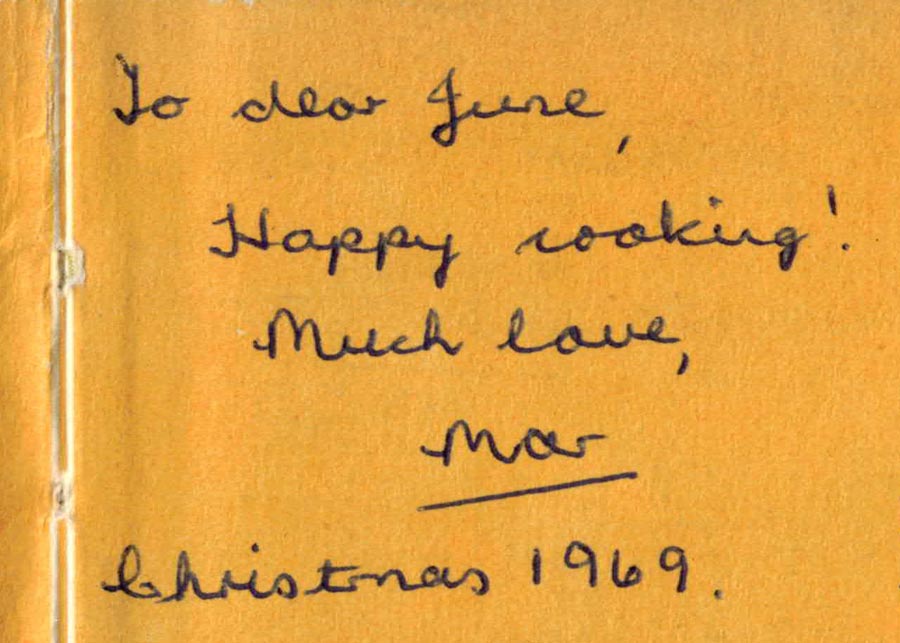 To dear June,
Happy cooking!
Much love,
Mar
Christmas 1969.